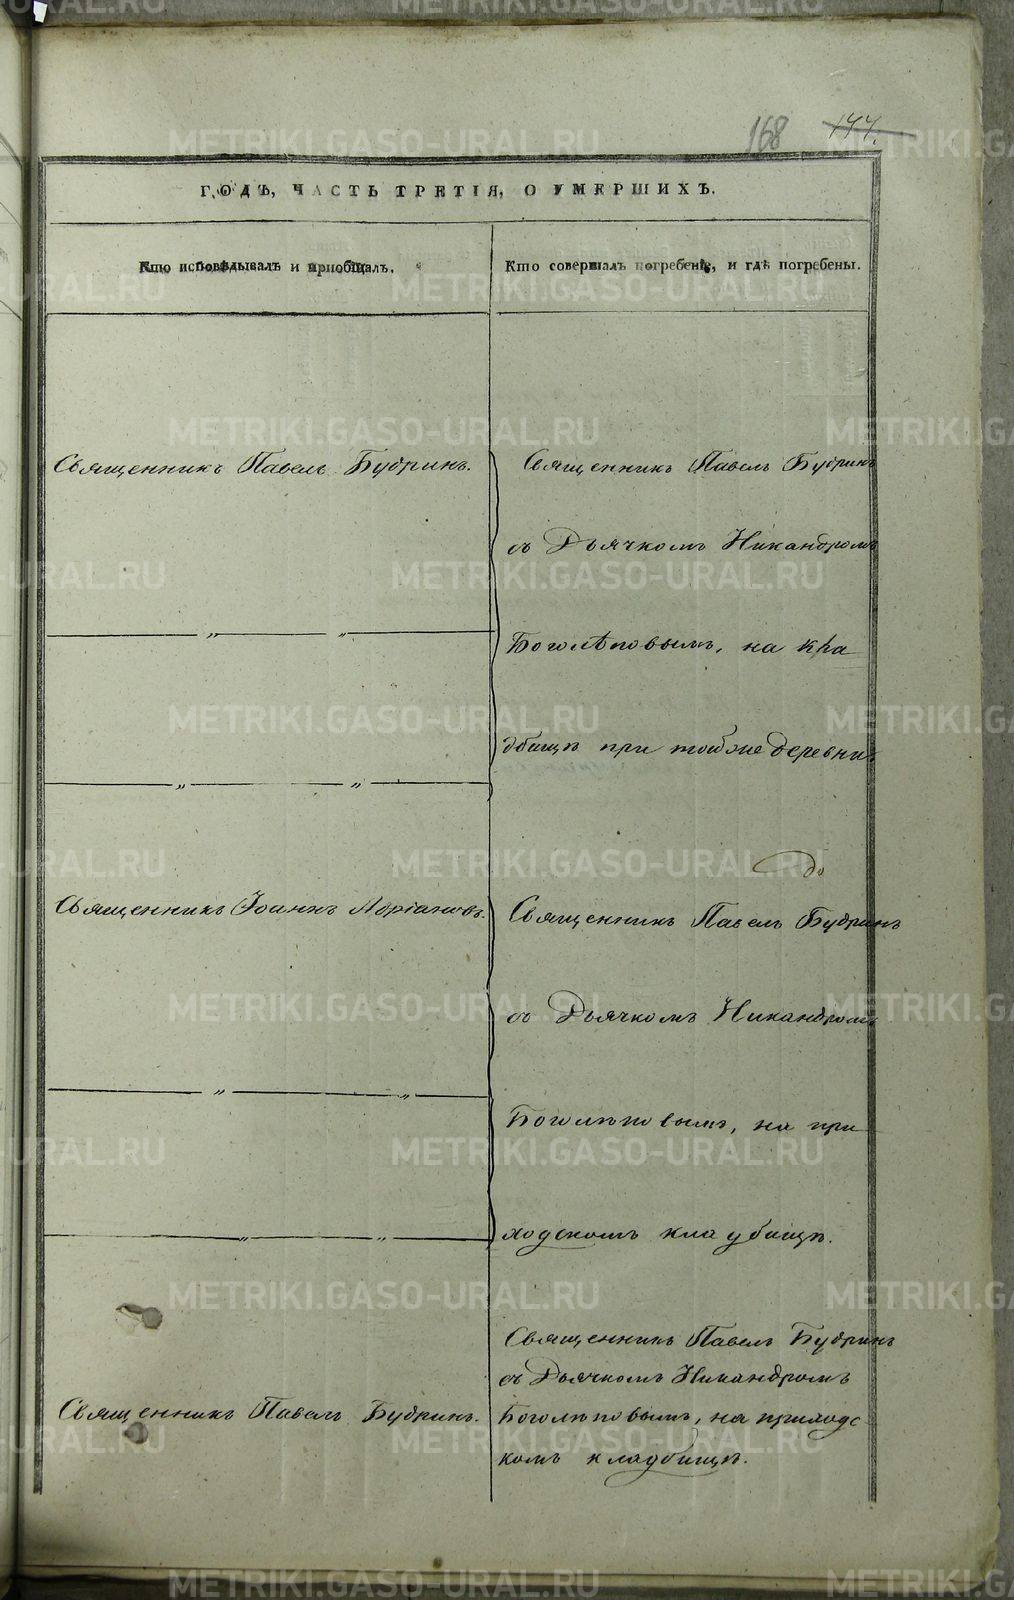 168 144.
ГОДЪ, ЧАСТЬ ТРЕТІЯ, О УМЕРШИХЪ.
Кто исповѣдывалъ и приобщалъ.
Кто совершалъ погребеніе, и гдѣ погребены.
Священникъ Павелъ Будринъ.
Священникъ Павелъ Будринъ
съ Дьячкомъ Никандромъ
Боголѣповымъ, на кла
дбищѣ при тойже деревни
Священникъ Іоаннъ Адріановъ.
до
Священникъ Павелъ Будринъ
съ Дьячкомъ Никандромъ
Боголѣповымъ, на при
ходскомъ кладбищѣ.
Священникъ Павелъ Будринъ.
Священникъ Павелъ Будринъ
съ Дьячкомъ Никандромъ
Боголѣповымъ, на приходс
комъ кладбищѣ.
METRIKI.GASO-URAL.RU